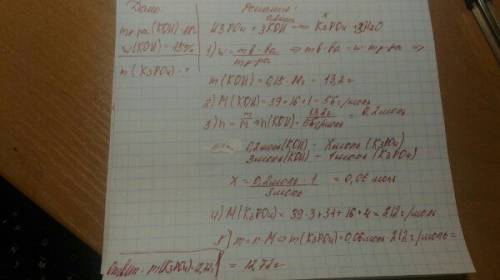 Дано:
mр-ра(KOH)=88г
w(KOH)=15%
m(K3PO4)-?
Решение:
0,2моль x
H3PO4+3KOH → K3PO4+3H2O
1) w= mв-ва / mр-ра ⇒ mв-ва= w·mр-ра ⇒
m(KOH)=0,15·88г=13,2г
2) M(KOH)=39+16+1=56г/моль
3) n= m/M ⇒ n(KOH)= 13,2г / 56г/моль = 0,2моль
0,2моль(KOH) - Xмоль(K3PO4)
3моль(KOH) - 1моль(K3PO4)
X= 0,2моль·1 / 3моль = 0,06 моль
4) M(K3PO4)=39·3+31+16·4=212г/моль
5) m=n·M ⇒ m(K3PO4)=0,06моль·212г/моль=
= 12,72г
Ответ: m(K3PO4)=12,72г